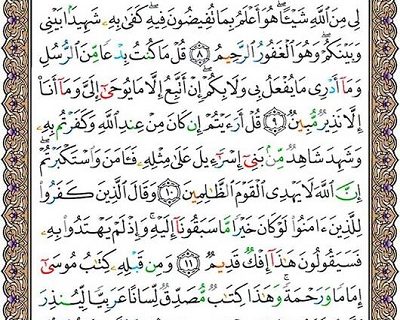 لِى مِنَ ٱللَّهِ شَيْـًٔا ۖ هُوَ أَعْلَمُ بِمَا تُفِيضُونَ فِيهِ ۖ كَفَىٰ بِهِۦ شَهِيدًۢا بَيْنِى
وَبَيْنَكُمْ ۖ وَهُوَ ٱلْغَفُورُ ٱلرَّحِيمُ ٨ قُلْ مَا كُنتُ بِدْعًا مِّنَ ٱلرُّسُلِ
وَمَآ أَدْرِى مَا يُفْعَلُ بِى وَلَا بِكُمْ ۖ إِنْ أَتَّبِعُ إِلَّا مَا يُوحَىٰٓ إِلَىَّ وَمَآ أَنَا۠
إِلَّا نَذِيرٌ مُّبِينٌ ٩ قُلْ أَرَءَيْتُمْ إِن كَانَ مِنْ عِندِ ٱللَّهِ وَكَفَرْتُم بِهِۦ
وَشَهِدَ شَاهِدٌ مِّنۢ بَنِىٓ إِسْرَٰٓءِيلَ عَلَىٰ مِثْلِهِۦ فَـَٔامَنَ وَٱسْتَكْبَرْتُمْ ۖ
إِنَّ ٱللَّهَ لَا يَهْدِى ٱلْقَوْمَ ٱلظَّـٰلِمِينَ ١٠ وَقَالَ ٱلَّذِينَ كَفَرُوا۟
لِلَّذِينَ ءَامَنُوا۟ لَوْ كَانَ خَيْرًا مَّا سَبَقُونَآ إِلَيْهِ ۚ وَإِذْ لَمْ يَهْتَدُوا۟ بِهِۦ
فَسَيَقُولُونَ هَـٰذَآ إِفْكٌ قَدِيمٌ ١١ وَمِن قَبْلِهِۦ كِتَـٰبُ مُوسَىٰٓ
إِمَامًا وَرَحْمَةً ۚ وَهَـٰذَا كِتَـٰبٌ مُّصَدِّقٌ لِّسَانًا عَرَبِيًّا لِّيُنذِرَ